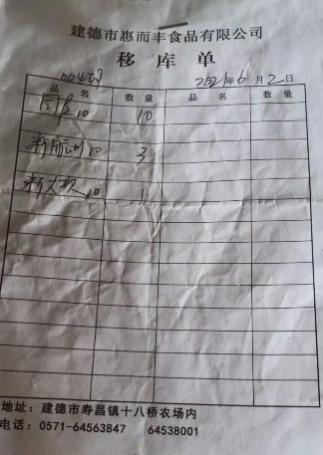 建德市惠而丰食品有限公司
移库单
2021年6月2日
品名 数量 品名 数量
10 10
新 10 3
新 10 1
地址：建德市寿昌镇十八桥农场内
电话：0571-64563847 64538001